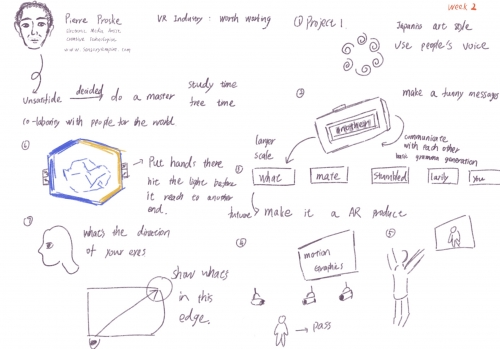 week 2
Pierre Proske
Electronic Media Artist
Creative Technologist
VR Industry : worth wating
① Project 1.
Japanies art style
Use people's voice
Unsantide decided do a master
study time
free time
co-labority with people for the world
②
make a funny messages
another
larger scale
communicate with each other
what
mate
stumbled
early
you
future
make it a AR produce
Put hands there
hit the light before
it reach to another
end.
③
whats the direction
of your eyes
show whats
in this
edge.
motion
Graphics
→ pass
⑤